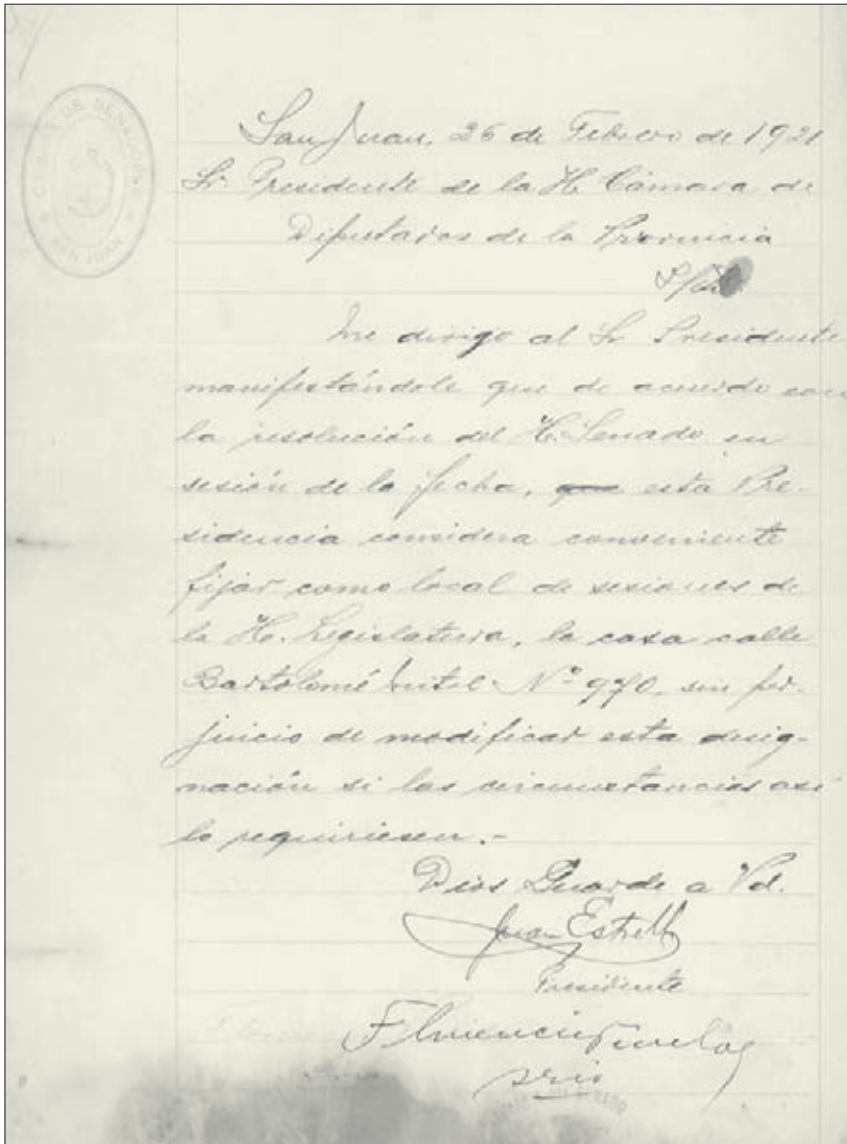 CAMARA DE SENADORES
SAN JUAN
San Juan, 26 de Febrero de 1921
Sr. Presidente de la H. Cámara de
Diputados de la Provincia
Me dirigo al Sr. Presidente
manifestándole que de acuerdo con
la resolución del H. Senado en
sesión de la fecha, que esta Pre-
sidencia considera conveniente
fijar como local de sesiones de
la H. Legislatura, la casa calle
Bartolomé Mitre Nº 970, sin per-
juicio de modificar esta desig-
nación si las circunstancias así
lo requiriesen.-
Dios Guarde a Vd.
Juan Estrella
Presidente
Florencio
srio